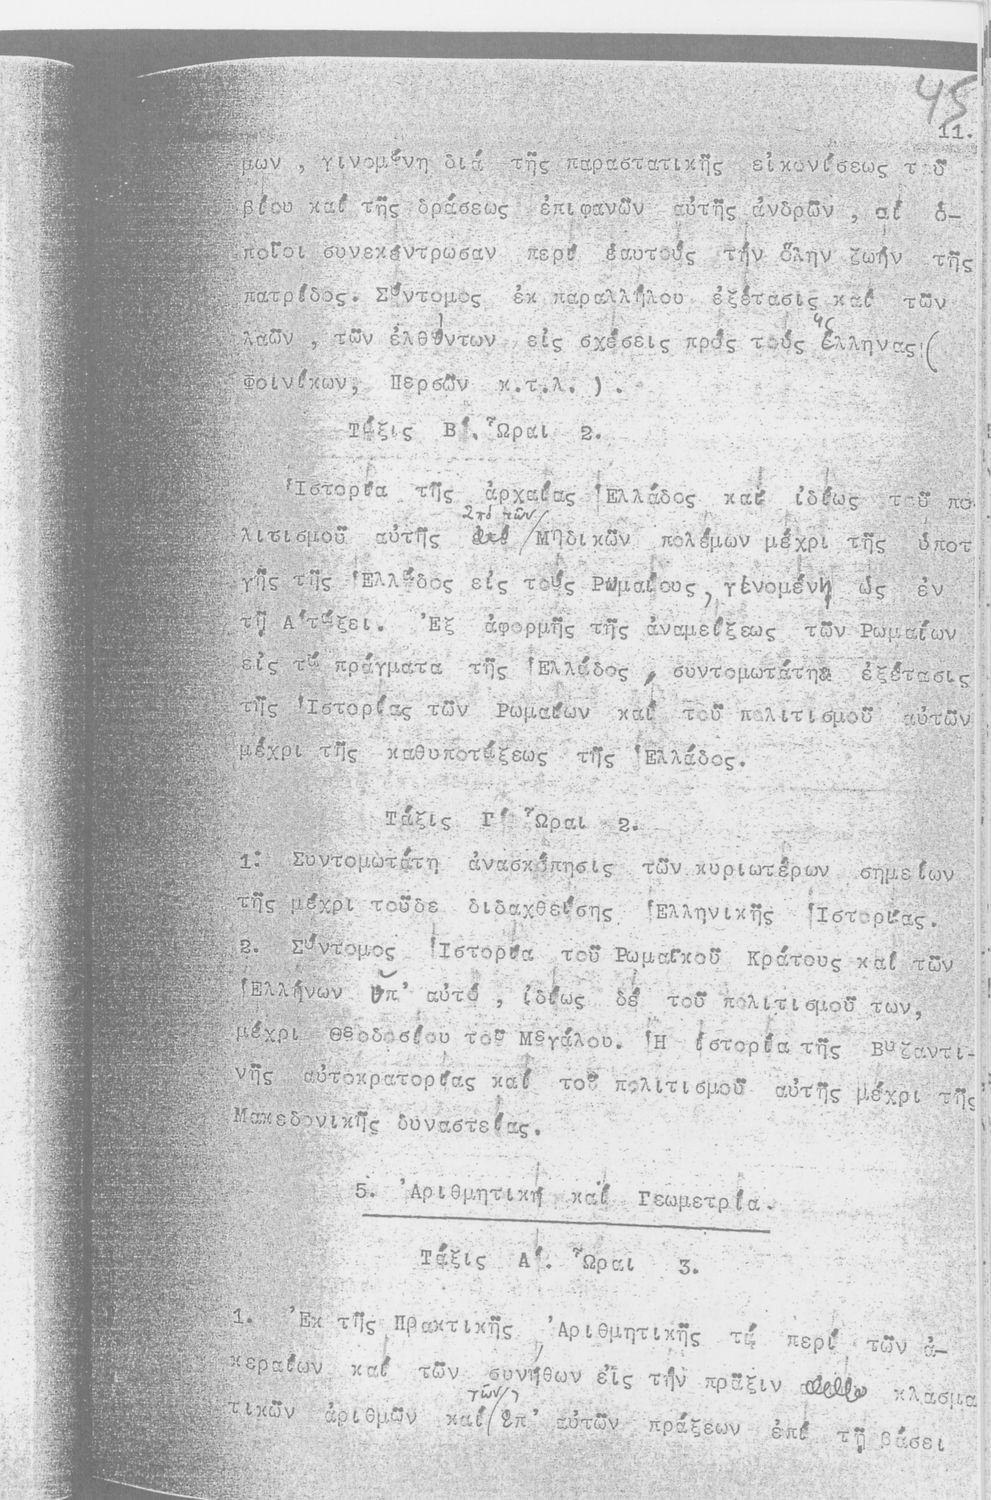 45
11.
μων , γινομένη διά τῆς παραστατικῆς εἰκονίσεως τοῦ
βίου καί τῆς δράσεως ἐπιφανῶν αὐτῆς ἀνδρῶν , αἱ ὁ-
ποῖοι συνεκέντρωσαν περί ἑαυτούς τήν ὅλην ζωήν τῆς
πατρίδος. Σύντομος ἐκ παραλλήλου ἐξέτασις καί τῶν
λαῶν , τῶν ἐλθόντων εἰς σχέσεις πρός τούς ἕλληνας (
Φοινίκων, Περσῶν κ.τ.λ. ) .
Τάξις Β΄. Ὧραι 2.
Ἱστορία τῆς ἀρχαίας Ἑλλάδος καί ἰδίως τοῦ πο
ἀπό τῶν
λιτισμοῦ αὐτῆς Μηδικῶν πολέμων μέχρι τῆς ὑποτ
γῆς τῆς Ἑλλάδος εἰς τούς Ρωμαίους, γενομένη ὡς ἐν
τῇ Α΄τάξει. Ἐξ ἀφορμῆς τῆς ἀναμείξεως τῶν Ρωμαίων
εἰς τά πράγματα τῆς Ἑλλάδος , συντομωτάτη ἐξέτασις
τῆς Ἱστορίας τῶν Ρωμαίων καί τοῦ πολιτισμοῦ αὐτῶν
μέχρι τῆς καθυποτάξεως τῆς Ἑλλάδος.
Τάξις Γ΄ Ὧραι 2.
1. Συντομωτάτη ἀνασκόπησις τῶν κυριωτέρων σημείων
τῆς μέχρι τοῦδε διδαχθείσης Ἑλληνικῆς Ἱστορίας.
2. Σύντομος Ἱστορία τοῦ Ρωμαϊκοῦ Κράτους καί τῶν
Ἑλλήνων ὑπ' αὐτό , ἰδίως δέ τοῦ πολιτισμοῦ των,
μέχρι Θεοδοσίου τοῦ Μεγάλου. Ἡ ἱστορία τῆς Βυζαντι-
νῆς αὐτοκρατορίας καί τοῦ πολιτισμοῦ αὐτῆς μέχρι τῆς
Μακεδονικῆς δυναστείας.
5. Ἀριθμητική καί Γεωμετρία.
Τάξις Α΄. Ὧραι 3.
1. Ἐκ τῆς Πρακτικῆς Ἀριθμητικῆς τά περί τῶν ἀ-
κεραίων καί τῶν συνήθων εἰς τήν πρᾶξιν κλασμα
τῶν
τικῶν ἀριθμῶν καί ἐπ' αὐτῶν πράξεων ἐπί τῇ βάσει